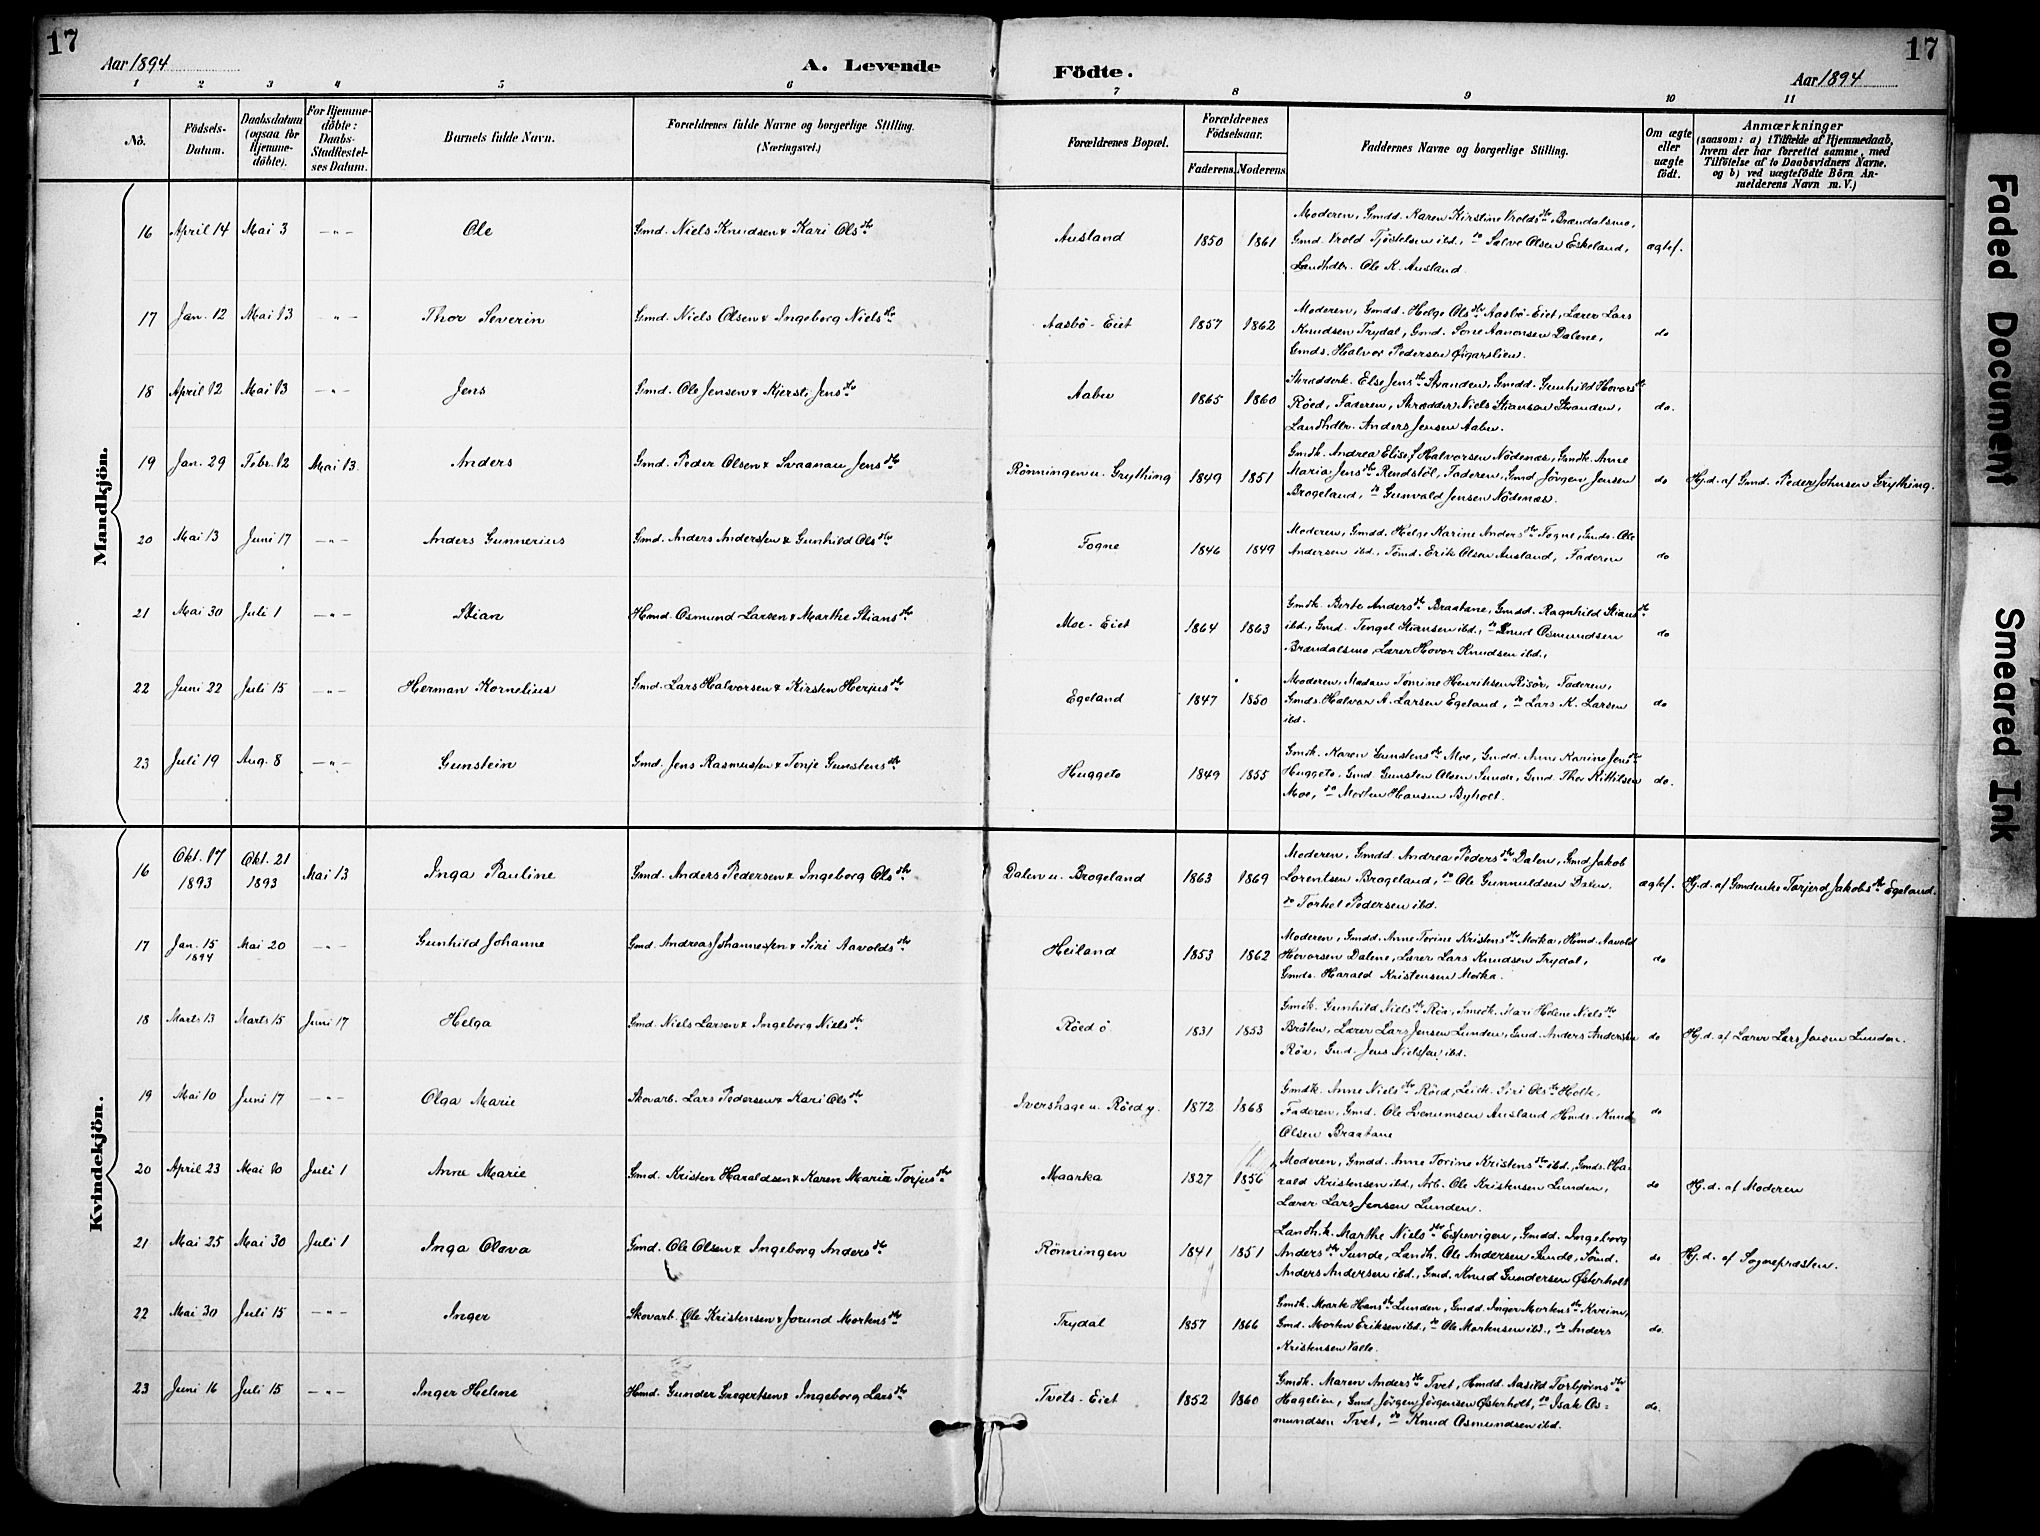 17
Aar 1894
A. Levende
Födte.
Aar 1894
17
1 2 3 4 5 6 7 8 9 10 11
No.
Födsels-Datum.
Daabsdatum (ogsaa for Hjemme-döbte).
For Hjemme-döbte: Daabs-Stadfæstel-ses Datum.
Barnets fulde Navn.
Forældrenes fulde Navne og borgerlige Stilling. (Næringsvei.)
Forældrenes Bopæl.
Forældrenes Födselsaar.
Faderens. Moderens.
Faddernes Navne og borgerlige Stilling.
Om ægte eller uægte födt.
Anmærkninger
(saasom: a) i Tilfælde af Hjemmedaab,
hvem der har forrettet samme, med
Tilföielse af to Daabsvidners Navne,
og b) ved uægtefödte Börn An-
melderens Navn m. V.)
Mandkjön.
16 April 14 Mai 3 —"— Ole Gmd. Niels Knudsen & Kari Olsdtr Ausland 1850 1861
Moderen, Gmdd. Karen Kirstine Vroldsdtr Brændalsmo,
Gmd. Vrold Tjöstelsen ibd., do Salve Olsen Eskeland, ægtef.
Landhdlr. Ole K. Ausland.
17 Jan. 12 Mai 13 —"— Thor Severin Gmd. Niels Olsen & Ingeborg Nielsdtr Aasbö-Eiet 1857 1862
Moderen, Gmdd. Helge Olsdtr Aasbö-Eiet, Lærer Lars
Knudsen Trydal, Gmd. Sone Aanonsen Dalene, do
Gmds. Halvor Pedersen Øigarslien.
18 April 12 Mai 13 —"— Jens Gmd. Ole Jensen & Kjersti Jensdtr Aabu 1865 1860
Skrædderk. Else Jensdtr Stranden, Gmdd. Gunhild Hovorsdtr
Röed, Faderen, Skrædder Niels Stiansen Stranden, do.
Landhdlr. Anders Jensen Aabu.
19 Jan. 29 Febr. 12 Mai 13 Anders Gmd. Peder Olsen & Svaanau Jensdtr Rönningen u. Grything 1849 1851
Gmdk. Andrea Elise Halvorsen Nödenæs, Gmdk. Anne
Maria Jensdtr Rendstöl, Faderen, Gmd Jörgen Jensen do Hj.d. af Gmd. Peder Johnsen Grything.
Brogeland, do Gunvald Jensen Nödenæs.
20 Mai 13 Juni 17 —"— Anders Gunnerius Gmd. Anders Anderssen & Gunhild Olsdtr Fogne 1846 1849
Moderen, Gmdd. Helge Karine Andersdtr Fogne, Gmds. Ole
Andersen ibd., Tömd. Erik Olsen Ausland, Faderen do
21 Mai 30 Juli 1 —"— Stian Hmd. Osmund Larsen & Marthe Stiansdtr Moe-Eiet 1864 1863
Gmdk. Berte Andersdtr Braatane, Gmdd. Ragnhild Stiansdtr
ibd., Gmd. Tengel Stiansen ibd., do Knud Osmundsen do
Brændalsmo, Lærer Hovor Knudsen ibd.,
22 Juni 22 Juli 15 —"— Herman Kornelius Gmd. Lars Halvorsen & Kirsten Herjusdtr Egeland 1847 1850
Moderen, Madam Tomine Henriksen Risör, Faderen,
Gmds. Halvor A. Larsen Egeland, do Lars K. Larsen do
ibd.
23 Juli 19 Aug. 8 —"— Gunstein Gmd. Jens Rasmussen & Tonje Gunstensdtr Huggeto 1849 1855
Gmdk. Karen Gunstensdtr Moe, Gmdd. Anne Karine Jensdtr
Huggeto. Gmd Gunsten Olsen Sunde, Gmd. Thor Kittilsen do.
Moe, do Morten Hansen Byholt.
Kvindekjön.
16 Okt. 17 1893 Okt. 21 1893 Mai 13 Inga Pauline Gmd. Anders Pedersen & Ingeborg Olsdtr Dalen u. Brogeland 1863 1869
Moderen, Gmdd Andrea Pedersdtr Dalen, Gmd Jakob
Lorentsen Brogeland, do Ole Gunnuldsen Dalen, ægtef. Hj.d. af Gmdenke Torjerd Jakobsdtr Egeland.
do Torkel Pedersen ibd.
17 Jan. 15 1894 Mai 20 —"— Gunhild Johanne Gmd. Andreas Johannessen & Siri Aavoldsdtr Heiland 1853 1862
Moderen, Gmdd. Anne Torine Kristensdtr Morka, Hmd. Aavold
Hovorsen Dalene, Lærer Lars Knudsen Trydal, do
Gmds. Harald Kristensen Morka.
18 Marts 13 Marts 15 Juni 17 Helga Gmd. Niels Larsen & Ingeborg Nielsdtr Röed ö 1831 1853
Gmdk. Gunhild Nielsdtr Röa, Smedk. Mari Helene Nielsdtr
Bråten, Lærer Lars Jensen Lunden, Gmd. Anders Andersen do Hj.d. af Lærer Lars Jensen Lunden.
Röa, Gmd. Jens Nielssen ibd.
19 Mai 10 Juni 17 —"— Olga Marie Skovarb. Lars Pedersen & Kari Olsdtr Ivershage u. Röed y. 1872 1868
Gmdk. Anne Nielsdtr Röed, Leiek. Siri Olsdtr Holte,
Faderen, Gmd. Ole Svenumsen Ausland Hmds. Knud do
Olsen Braatane
20 April 23 Mai 10 Juli 1 Anne Marie Gmd. Kristen Haraldsen & Karen Marie Torjusdtr Maarka 1827 1856
Moderen, Gmdd. Anne Torine Kristensdtr ibd., Gmds. Ha-
rald Kristensen ibd., Arb. Ole Kristensen Lunden, do Hj.d. af Moderen
Lærer Lars Jensen Lunden.
21 Mai 25 Mai 30 Juli 1 Inga Olava Gmd. Ole Olsen & Ingeborg Andersdtr Rönningen 1841 1851
Landh.k. Marthe Nielsdtr Espevigen, Gmdd. Ingeborg
Andersdtr Sunde, Landh. Ole Andersen Sunde, Sömd. do Hj.d. af Sognepræsten.
Anders Andersen ibd., Gmd. Knud Gundersen Österholt
22 Mai 30 Juli 15 —"— Inger Skovarb. Ole Kristensen & Jorund Mortensdtr Trydal 1857 1866
Gmdk. Marte Hansdtr Lunden, Gmdd. Inger Mortensdtr Kveim,
Gmd. Morten Eriksen ibd., do Ole Mortensen ibd., do Anders do.
Kristensen Valle.
23 Juni 16 Juli 15 —"— Inger Helene Hmd. Gunder Gregertsen & Ingeborg Larsdtr Tvets-Eiet 1852 1860
Gmdk. Maren Andersdtr Tvet, Hmdd. Aasild Torbjörnsdtr
Hagelien, Gmd. Jörgen Jörgensen Österholt, do Isak Os= do.
mundsen Tvet, do Knud Osmundsen ibd.
Faded Document
Smeared Ink